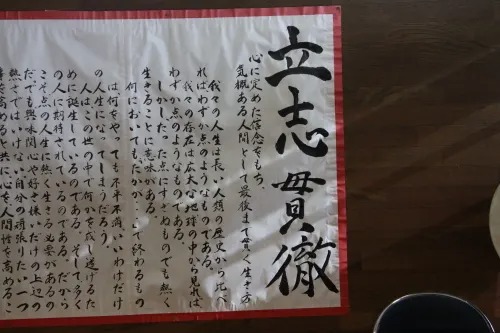 立志貫徹
心に定めた信念をもち、
気概ある人間として最後まで貫く生き方
我々の人生は長い人類の歴史から比べ
ればわずか点のようなものである。
我々の存在は広大な地球の中から見れば
わずか点のようなものである。
しかし、たった点にすぎぬものでも熱く
生きることに意味がある。
何においてもたかが…で終わるもの
は何をやっても不平不満、いいわけだけ
の人生になってしまうだろう。
人はこの世の中で何かをなし遂げるた
めに誕生しているのである。そして多く
の人に期待されているのである。だから
こそ点の人生に熱く生きる必要があるの
だ。でも興味関心や好き嫌いだけの上辺の
熱さではいけない。自分の頑張りたい一つ
を高めると共に、心を人間性を高めるこ